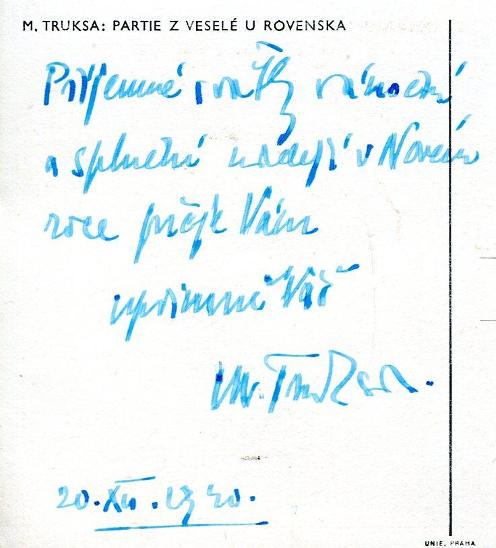 M. TRUKSA: PARTIE Z VESELÉ U ROVENSKA
Příjemné svátky vánoční
a splnění nadějí v Novém
roce přeje Vám
upřímně Váš
M. Truksa.
20. XII. 1940.
UNIE, PRAHA